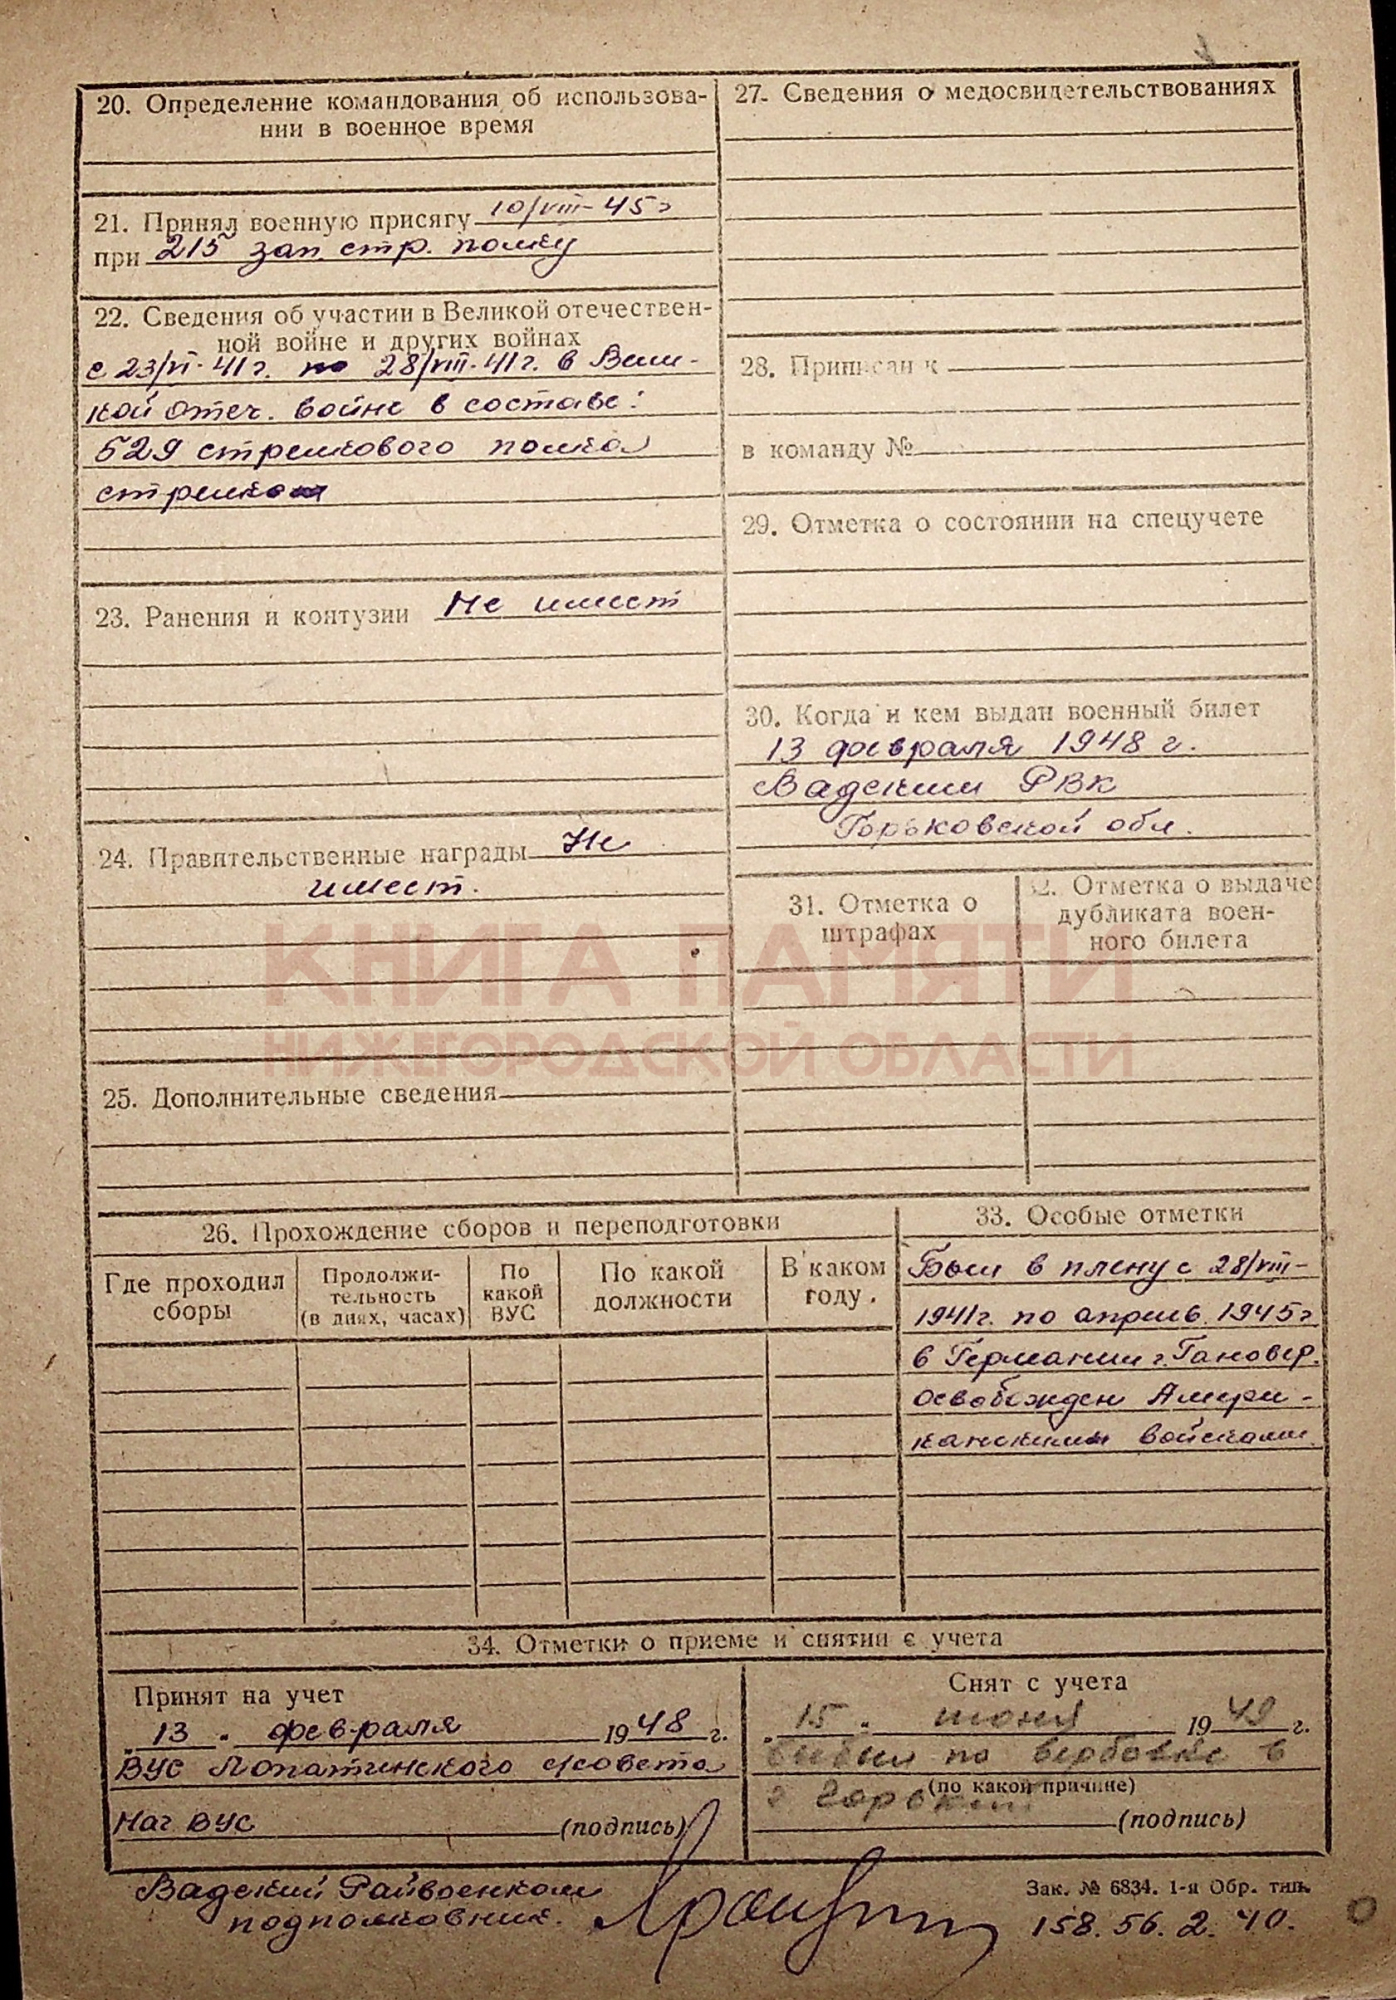 20. Определение командования об использова-
нии в военное время
21. Принял военную присягу 10/VIII-45 г
при 215 зап. стр. полку
22. Сведения об участии в Великой отечествен-
ной войне и других войнах
с 23/VI-41 г. по 28/VIII-41 г. в Вели-
кой Отеч. войне в составе:
529 стрелкового полка
стрелком
23. Ранения и контузии Не имеет
24. Правительственные награды Не
имеет.
25. Дополнительные сведения
27. Сведения о медосвидетельствованиях
28. Приписан к
в команду №
29. Отметка о состоянии на спецучете
30. Когда и кем выдан военный билет
13 февраля 1948 г.
Вадским РВК
Горьковской обл.
31. Отметка о
штрафах
32. Отметка о выдаче
дубликата воен-
ного билета
КНИГА ПАМЯТИ
НИЖЕГОРОДСКОЙ ОБЛАСТИ
26. Прохождение сборов и переподготовки
Где проходил
сборы
Продолжи-
тельность
(в днях, часах)
По
какой
ВУС
По какой
должности
В каком
году.
33. Особые отметки
Был в плену с 28/VIII-
1941 г. по апрель 1945 г
в Германии г. Гановер.
освобожден Амери-
канскими войсками.
34. Отметки о приеме и снятии с учета
Принят на учет
"13" февраля 1948 г.
ВУС Лопатинского с/совета
Нач ВУС (подпись)
Снят с учета
"15" июня 1949 г.
выбыл по вербовке в
(по какой причине)
г Горький
(подпись)
Вадский Райвоенком
подполковник.
Зак. № 6834. 1-я Обр. тип.
158. 56. 2. 40.